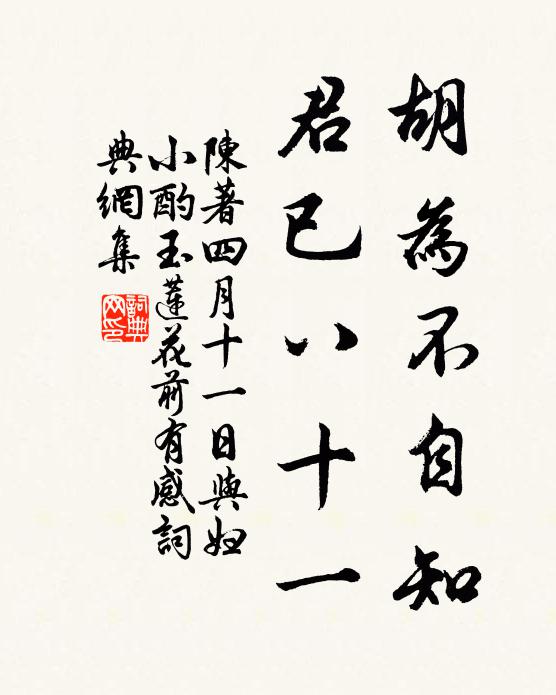 胡為不自知
君已八十一
陳著四月十一日與妲
小酌玉蓮花前有感詞
典網集
詞典網印